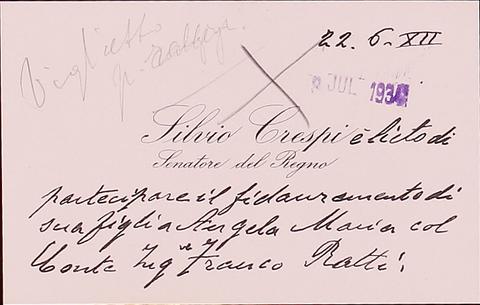 Biglietto
22. 6 - XII
JUL 1934
Silvio Crespi è lieto di
Senatore del Regno
partecipare il fidanzamento di
sua figlia Angela Maria col
Conte Ing Franco Ratti